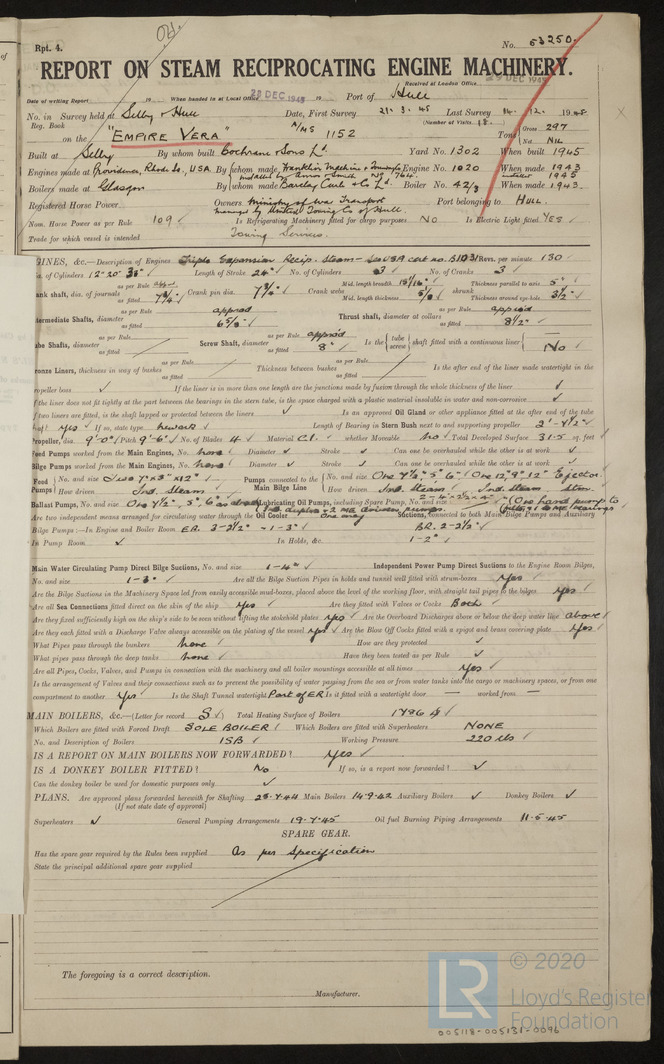 Rpt. 4.
No. 53250.
REPORT ON STEAM RECIPROCATING ENGINE MACHINERY.
Received at London Office 29 DEC 1945
Date of writing Report 19 When handed in at Local Office 29 DEC 1945 19 Port of Hull
No. in Survey held at Selby & Hull Date, First Survey 21.3.45 Last Survey 14.12.1945
Reg. Book (Number of Visits 18.)
on the "EMPIRE VERA" 1152 Tons Gross 297 Nil
Built at Selby By whom built Cochrane & Sons Ld. Yard No. 1302 When built 1945
Engines made at Providence, Rhode Is., USA By whom made Franklin Machine & Foundry Co Engine No. 1020 When made 1943
Boilers made at Glasgow By whom made Barclay Curle & Co Ld. Boiler No. When made 1943
Registered Horse Power Owners Ministry of War Transport Port belonging to HULL.
managed by United Towing Co of Hull.
Nom. Horse Power as per Rule 109 Is Refrigerating Machinery fitted for cargo purposes NO Is Electric Light fitted YES
Trade for which vessel is intended Towing Services.
GINES, &c.—Description of Engines Triple Expansion Recip. Steam Revs. per minute 130
Dia. of Cylinders 12"-20"-33" Length of Stroke 24" No. of Cylinders 3 No. of Cranks 3
ank shaft, dia. of journals as per Rule as fitted 7 3/4" Crank pin dia. 7 3/4" Crank webs Mid. length breadth Mid. length thickness shrunk Thickness parallel to axis 5" Thickness around eye-hole 3 1/2"
termediate Shafts, diameter as per Rule approd as fitted 6 5/8" Thrust shaft, diameter at collars as per Rule approd as fitted 8 1/2"
be Shafts, diameter as per Rule as fitted Screw Shaft, diameter as per Rule approd as fitted 8" Is the tube screw shaft fitted with a continuous liner No
ronze Liners, thickness in way of bushes as per Rule as fitted Thickness between bushes as per Rule as fitted Is the after end of the liner made watertight in the
ropeller boss If the liner is in more than one length are the junctions made by fusion through the whole thickness of the liner
f the liner does not fit tightly at the part between the bearings in the stern tube, is the space charged with a plastic material insoluble in water and non-corrosive
f two liners are fitted, is the shaft lapped or protected between the liners Is an approved Oil Gland or other appliance fitted at the after end of the tube
haft yes If so, state type Newark Length of Bearing in Stern Bush next to and supporting propeller 2'-7 1/2"
Propeller, dia. 9'-0" Pitch 9'-6" No. of Blades 4 Material C.I. whether Moveable no Total Developed Surface 31.5 sq. feet
eed Pumps worked from the Main Engines, No. none Diameter Stroke Can one be overhauled while the other is at work
Bilge Pumps worked from the Main Engines, No. none Diameter Stroke Can one be overhauled while the other is at work
Feed Pumps No. and size Two 7"x5"x12" How driven Ind. Steam Pumps connected to the Main Bilge Line No. and size One 7 1/2", 5", 6" One 12", 9", 12" Ejector How driven Ind. Steam Ind. Steam Stm.
Ballast Pumps, No. and size One 7 1/2", 5", 6" Lubricating Oil Pumps, including Spare Pump, No. and size
Are two independent means arranged for circulating water through the Oil Cooler Suctions, connected to both Main Bilge Pumps and Auxiliary
Bilge Pumps:—In Engine and Boiler Room ER. 3-2 1/2" - 1-3" BR. 2-2 1/2"
In Pump Room In Holds, &c. 1-2"
Main Water Circulating Pump Direct Bilge Suctions, No. and size 1-4" Independent Power Pump Direct Suctions to the Engine Room Bilges,
No. and size 1-3" Are all the Bilge Suction Pipes in holds and tunnel well fitted with strum-boxes yes
Are the Bilge Suctions in the Machinery Space led from easily accessible mud-boxes, placed above the level of the working floor, with straight tail pipes to the bilges yes
Are all Sea Connections fitted direct on the skin of the ship yes Are they fitted with Valves or Cocks Both
Are they fixed sufficiently high on the ship's side to be seen without lifting the stokehold plates yes Are the Overboard Discharges above or below the deep water line above
Are they each fitted with a Discharge Valve always accessible on the plating of the vessel yes Are the Blow Off Cocks fitted with a spigot and brass covering plate yes
What Pipes pass through the bunkers none How are they protected
What pipes pass through the deep tanks none Have they been tested as per Rule
Are all Pipes, Cocks, Valves, and Pumps in connection with the machinery and all boiler mountings accessible at all times yes
Is the arrangement of Valves and their connections such as to prevent the possibility of water passing from the sea or from water tanks into the cargo or machinery spaces, or from one
compartment to another yes Is the Shaft Tunnel watertight Part of ER Is it fitted with a watertight door — worked from —
MAIN BOILERS, &c.—(Letter for record S) Total Heating Surface of Boilers 1796
Which Boilers are fitted with Forced Draft SOLE BOILER Which Boilers are fitted with Superheaters NONE
No. and Description of Boilers 1SB Working Pressure 220 lbs
IS A REPORT ON MAIN BOILERS NOW FORWARDED? Yes
IS A DONKEY BOILER FITTED? No If so, is a report now forwarded?
Can the donkey boiler be used for domestic purposes only
PLANS. Are approved plans forwarded herewith for Shafting 28-7-44 Main Boilers 14-9-42 Auxiliary Boilers Donkey Boilers
(If not state date of approval)
Superheaters General Pumping Arrangements 19-7-45 Oil fuel Burning Piping Arrangements 11-5-45
SPARE GEAR.
Has the spare gear required by the Rules been supplied As per Specification
State the principal additional spare gear supplied
The foregoing is a correct description.
Manufacturer.
LR © 2020
Lloyd's Register
Foundation
005118-005131-0096